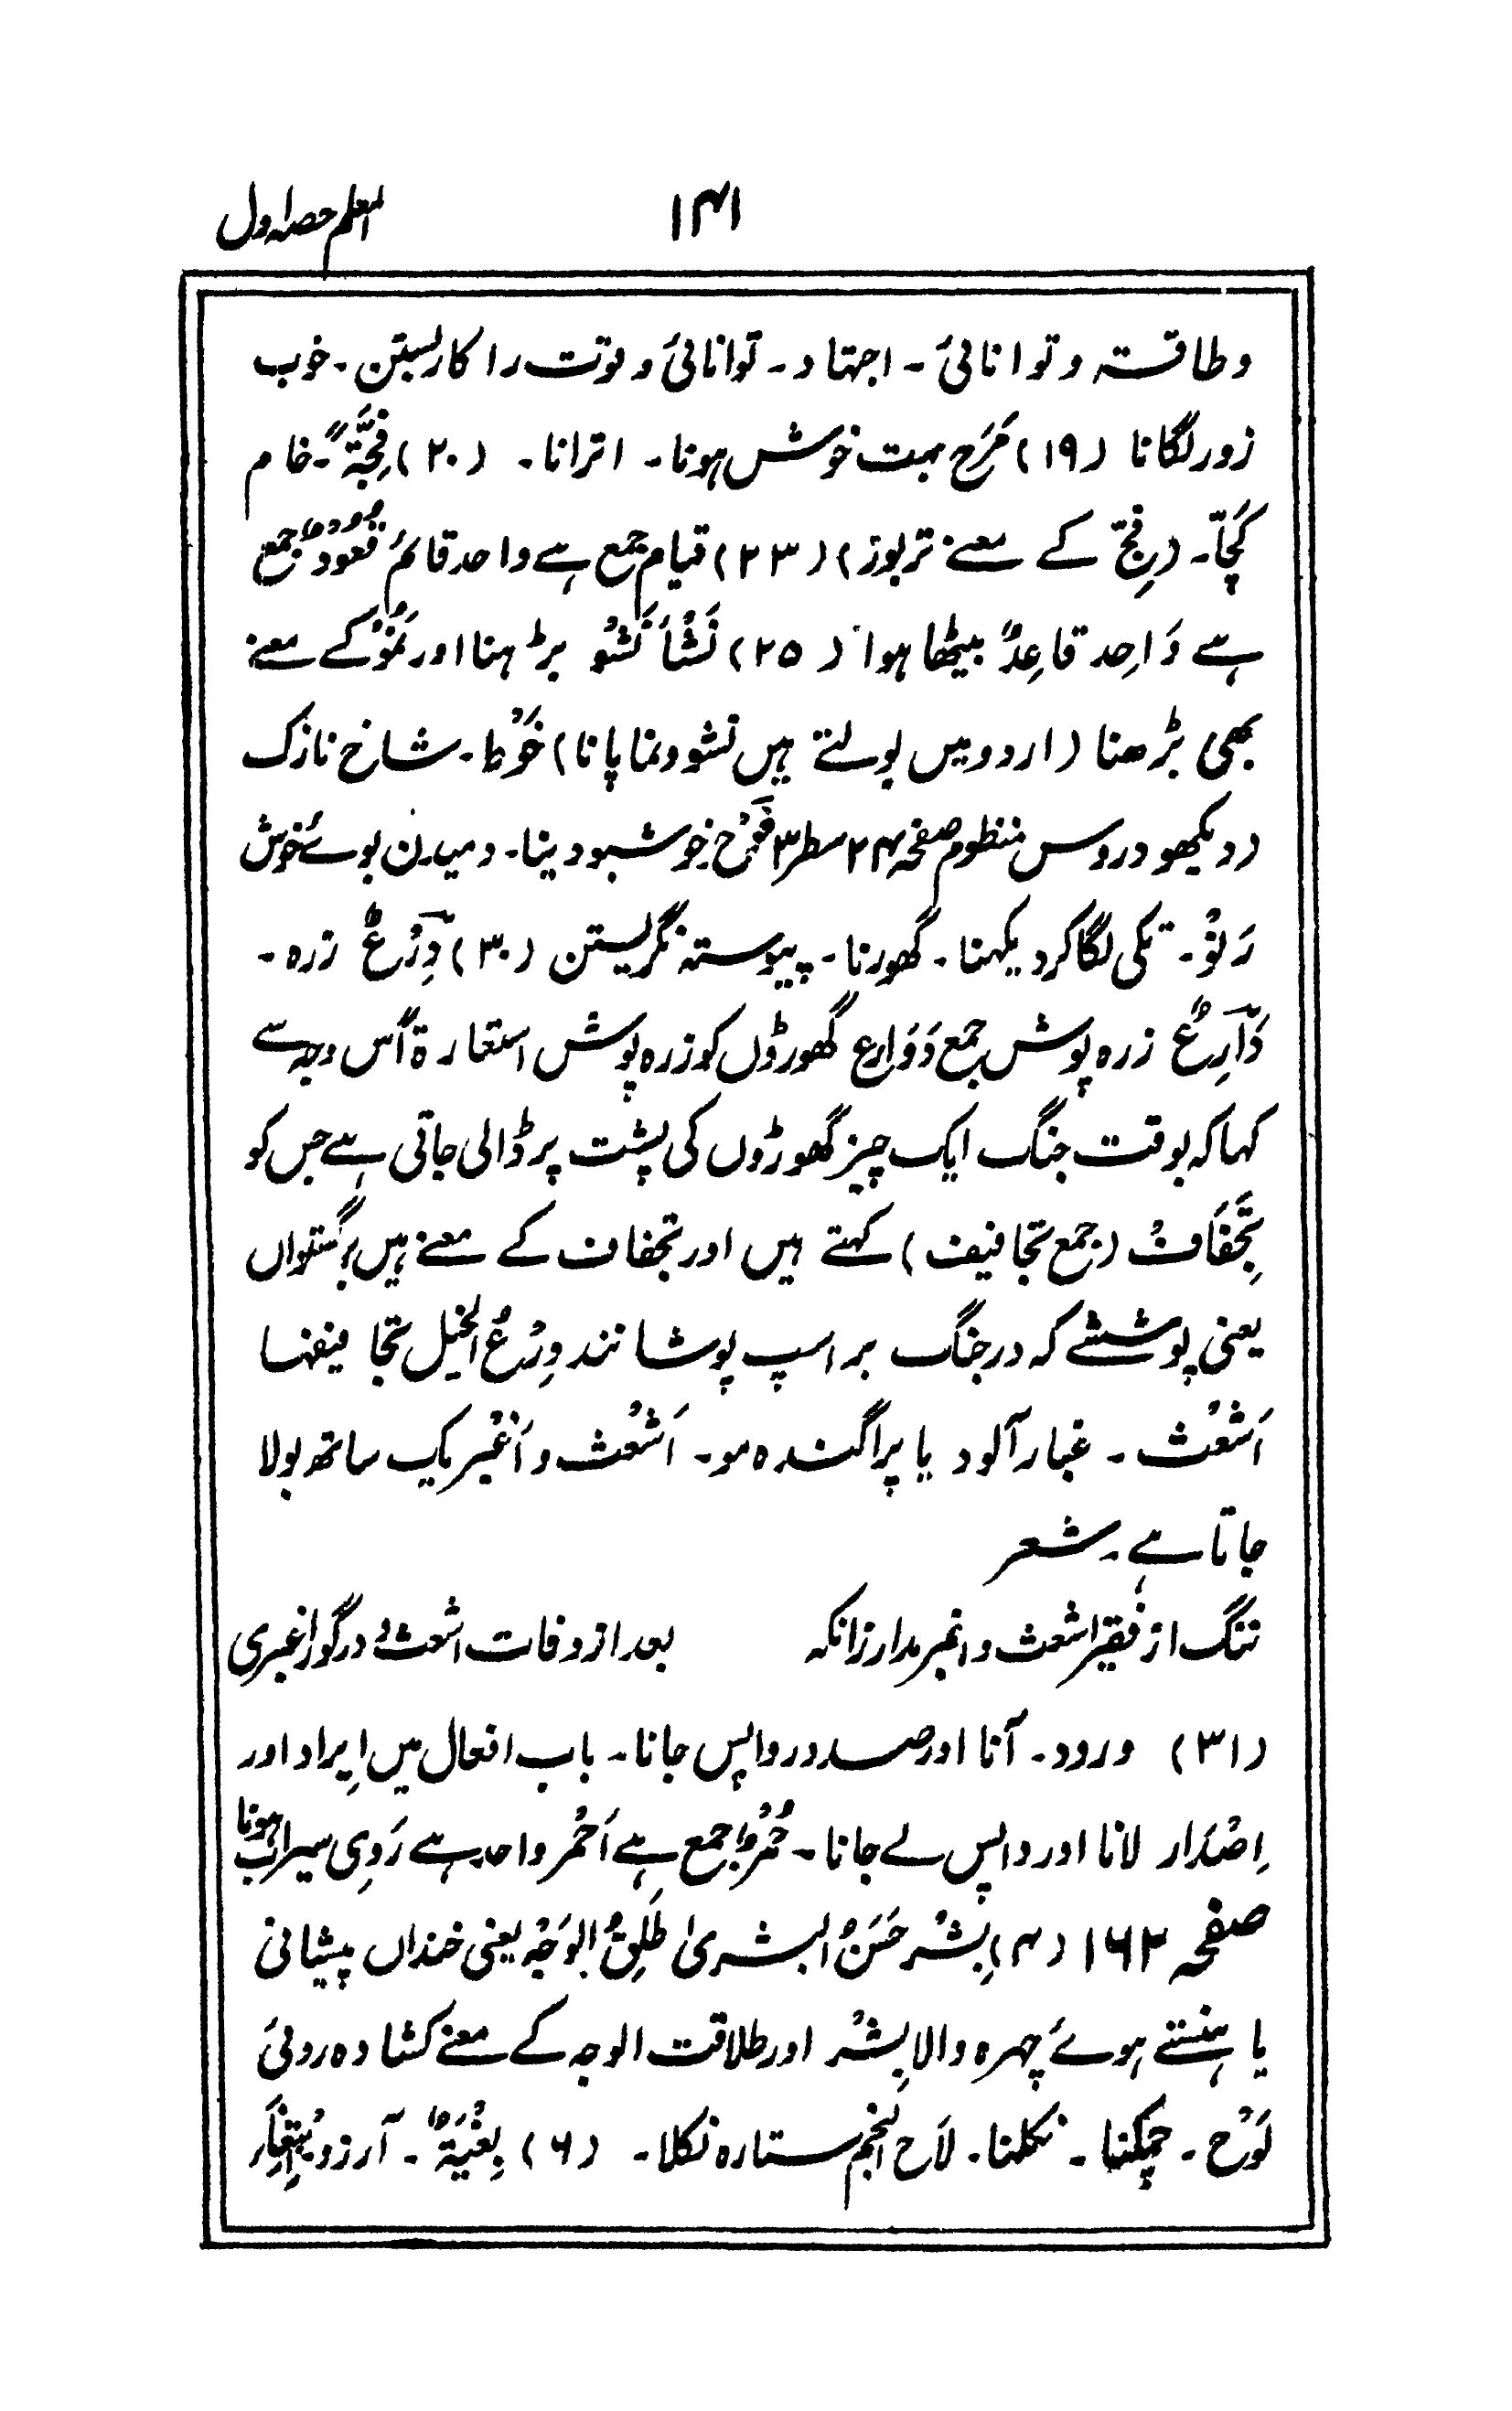 المعلم حصہ اول
۱۴۱
وطاقتہ وتوانائی ۔ اجتہاد ۔ توانائی وقوت را کاربستن ۔ خوب
زورلگانا (۱۹) مَرَح بہت خوش ہونا ۔ اترانا ۔ (۲۰) فِجَّۃٌ ۔ خام
کچّا ۔ (فِجّ کے معنے تربوز) (۲۳) قیام جمع ہے واحد قائمٌ قُعُوْدٌ جمع
ہے وَاحِد قاعِدٌ بیٹھا ہوا (۲۵) نَشْأ نَشْو بڑہنا اور نُمُوّ کے معنے
بھی بڑھنا (اردو میں بولتے ہیں نشوونما پانا) خَوْط ۔ شاخ نازک
(دیکھو دروس منظوم صفحہ ۲۴ سطر ۳ فَوْح خوشبو دینا ۔ دمیدن بوئے خوش
رَنْوٌ ۔ تکی لگا کر دیکہنا ۔ گھورنا ۔ پیوستہ نگریستن (۳۰) دِرْعٌ زرہ ۔
دَارِعٌ زرہ پوش جمع دَوَارِع گھوڑوں کو زرہ پوش استعارۃً اس وجہ سے
کہا کہ بوقت جنگ ایک چیز گھوڑوں کی پشت پر ڈالی جاتی ہے جس کو
تِجْفَافٌ (جمع تجافیف) کہتے ہیں اور تجفاف کے معنے ہیں برگستواں
یعنی پوششے کہ در جنگ بر اسپ پوشانند دِرْعُ الخیل تجافیفہا
اَشْعَث ۔ غبار آلود یا پراگندہ مو ۔ اَشْعَث و اَغْبَر یک ساتھ بولا
جاتا ہے ۔ شعر
ننگ از فقیر اشعث و اغبر مدار زانکہ بعد از وفات اشعث در گور اغبری
(۳۱) ورود ۔ آنا اور صدور واپس جانا ۔ باب افعال میں اِیراد اور
اِصْدَار لانا اور واپس لے جانا ۔ حُمْرٌ جمع ہے اَحْمر واحد ہے رَوِی سیراب ہونا
صفحہ ۱۶۲ (۴) بِشْر حَسَنُ البشریٰ طَلِقُ الوَجْہ یعنی خنداں پیشانی
یا ہنستے ہوئے چہرہ والا بِشْر اور طلاقت الوجہ کے معنے کشادہ روئی
لَوْح ۔ چمکنا ۔ نکلنا ۔ لاَح النجم ستارہ نکلا ۔ (۶) بِغْیَۃٌ ۔ آرزو